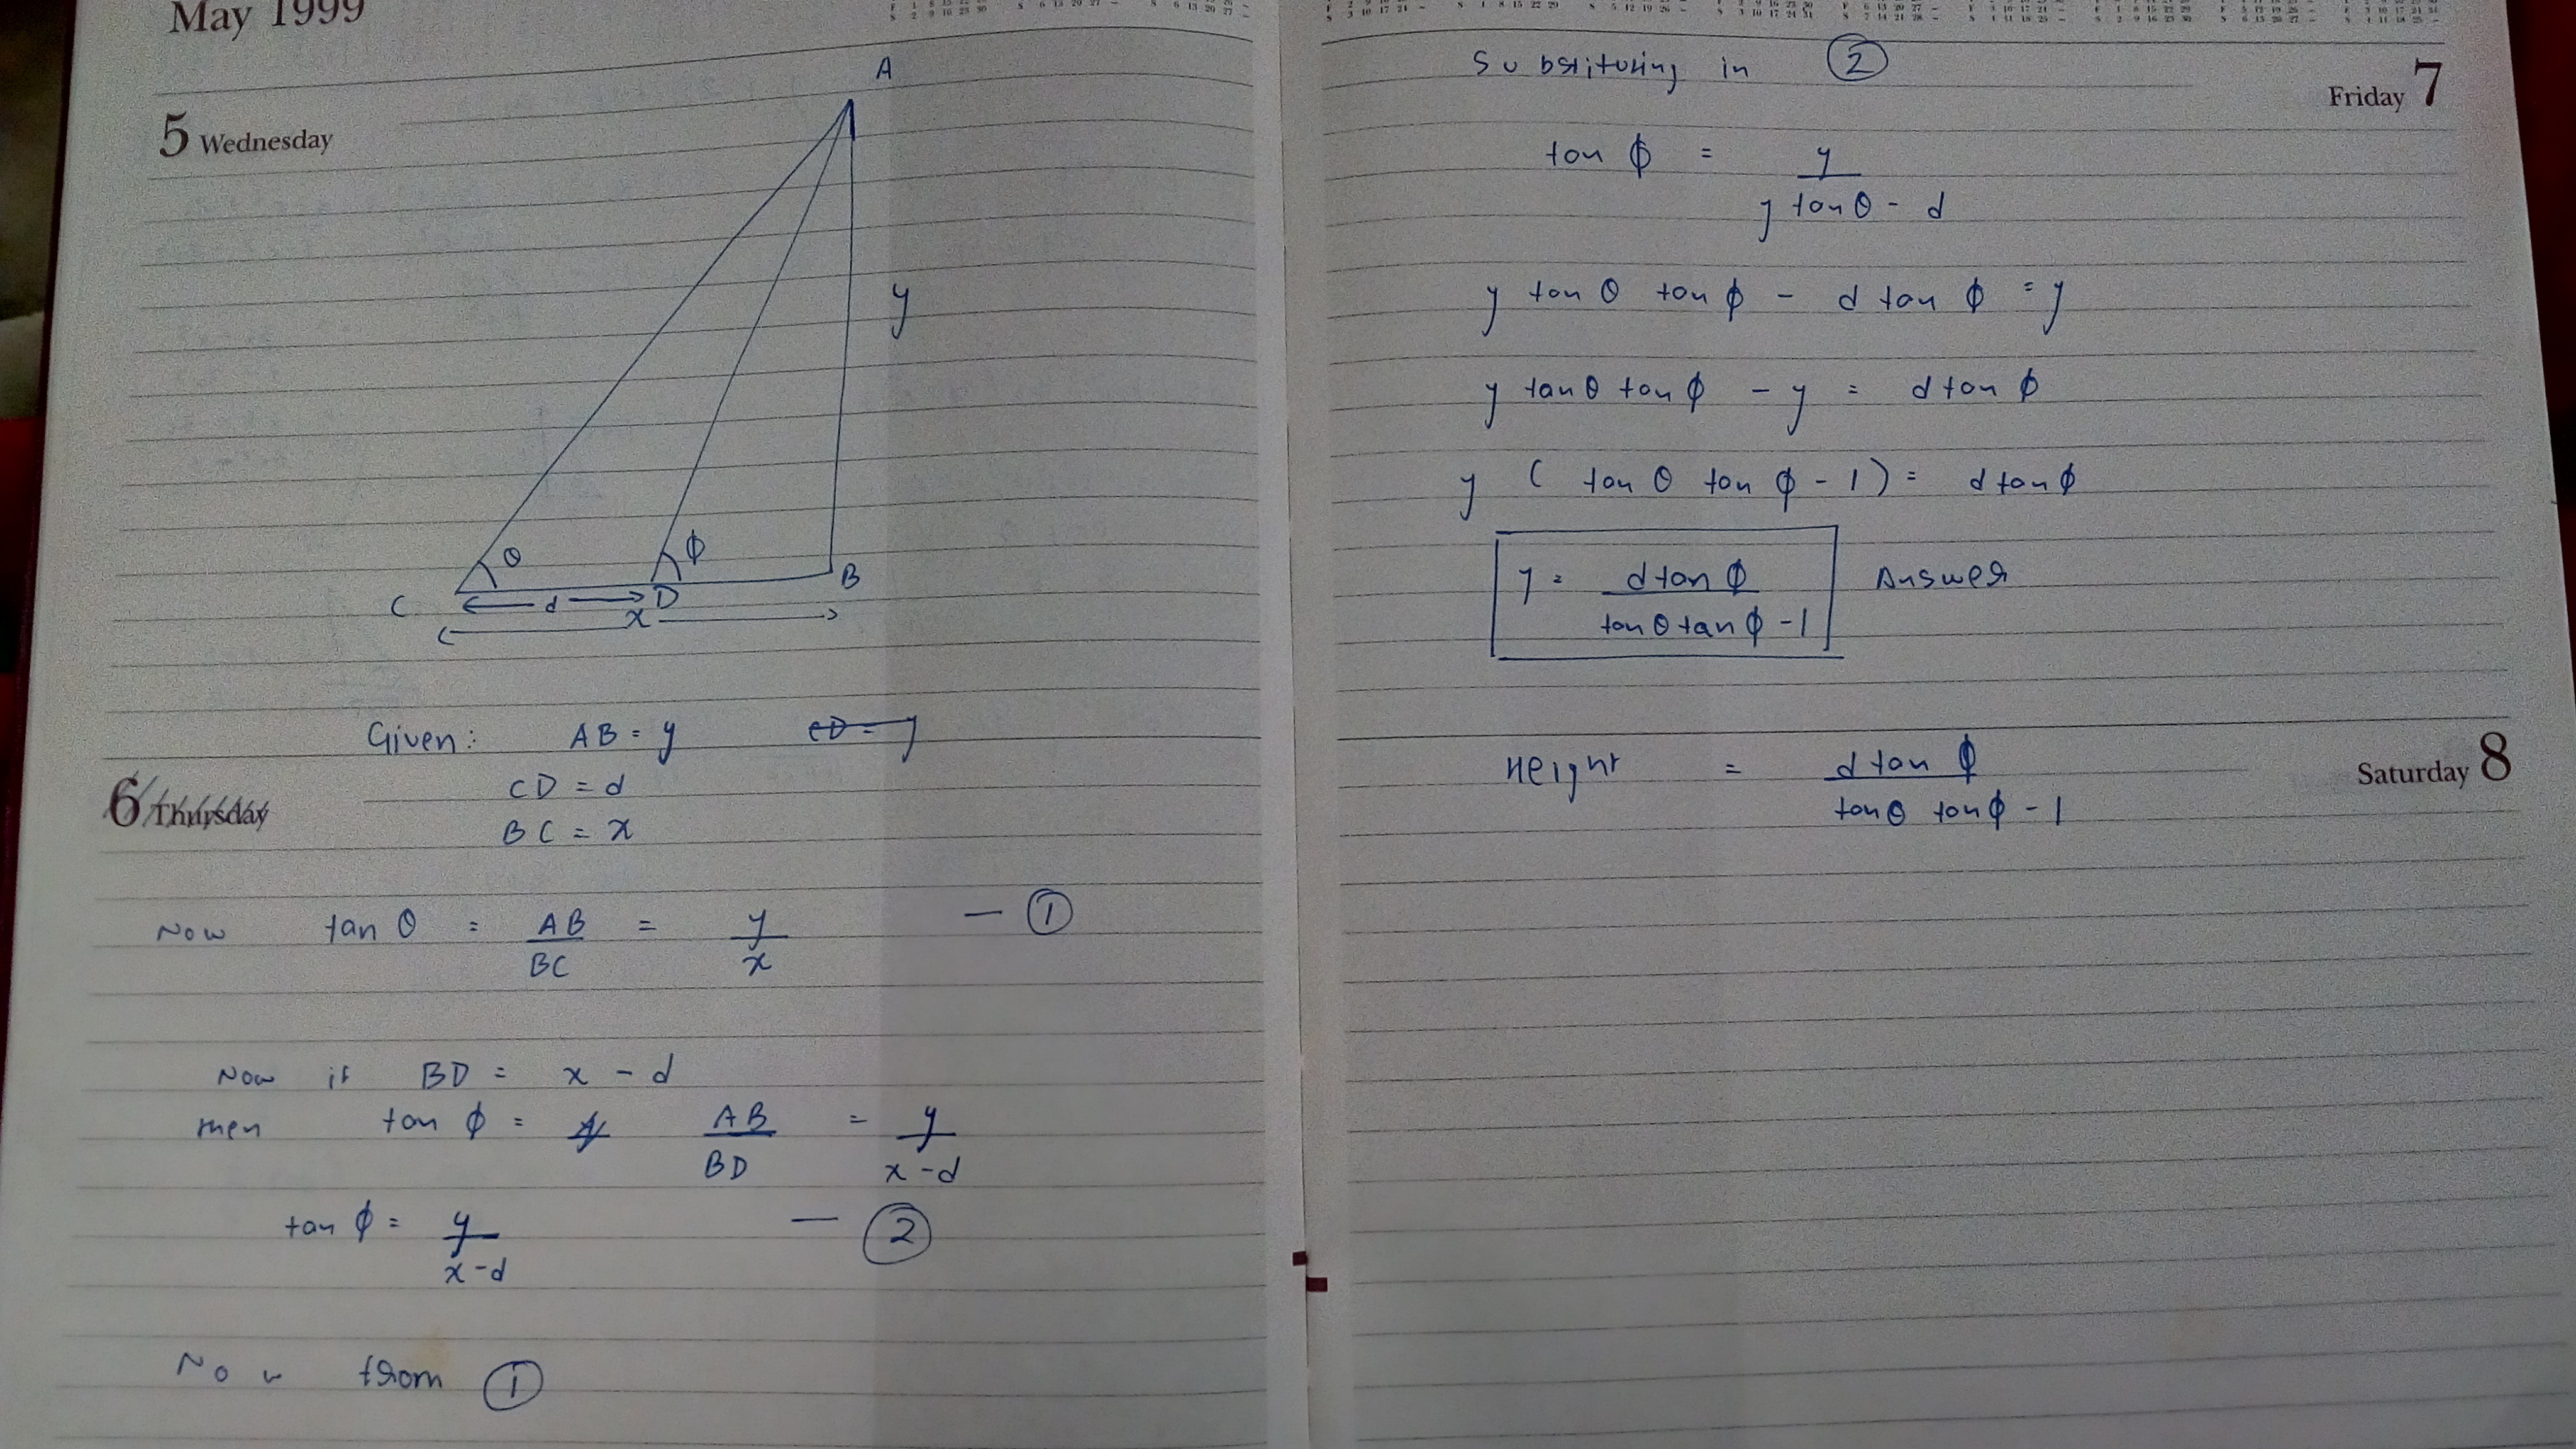 May 1999
5 Wednesday
A
y
θ
ϕ
C
d
D
B
x
Given: AB = y
CD = d
BC = x
6 Thursday
Now tan θ = AB/BC = y/x — ①
Now if BD = x - d
then tan ϕ = AB/BD = y/x-d
tan ϕ = y/x-d — ②
Now from ①
Substituting in ②
Friday 7
tan ϕ = y/y tan θ - d
y tan θ tan ϕ - d tan ϕ = y
y tan θ tan ϕ - y = d tan ϕ
y ( tan θ tan ϕ - 1 ) = d tan ϕ
y = d tan ϕ/tan θ tan ϕ - 1 Answer
Height = d tan ϕ/tan θ tan ϕ - 1
Saturday 8